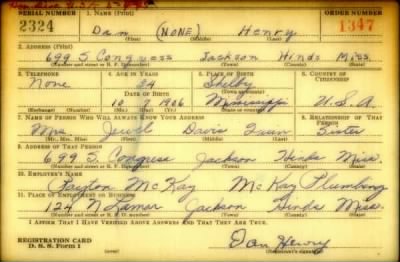 SERIAL NUMBER 1. NAME (Print) ORDER NUMBER
2324 Dan (NONE) Henry 1347
(First) (Middle) (Last)
2. ADDRESS (Print)
699 S. Congress Jackson Hinds Miss.
(Number and street or R. F. D. number) (Town) (County) (State)
3. TELEPHONE 4. AGE IN YEARS 5. PLACE OF BIRTH 6. COUNTRY OF CITIZENSHIP
None 34 Shelby
DATE OF BIRTH (Town or county)
10 7 1906 Mississippi U.S.A.
(Exchange) (Number) (Mo.) (Day) (Yr.) (State or country)
7. NAME OF PERSON WHO WILL ALWAYS KNOW YOUR ADDRESS 8. RELATIONSHIP OF THAT PERSON
Mrs. Jewel Davis Sister
(Mr., Mrs., Miss) (First) (Middle) (Last)
9. ADDRESS OF THAT PERSON
699 S. Congress Jackson Hinds Miss.
(Number and street or R. F. D. number) (Town) (County) (State)
10. EMPLOYER'S NAME
McKay McKay Plumbing
11. PLACE OF EMPLOYMENT OR BUSINESS
124 N Lamar Jackson Hinds Miss.
(Number and street or R. F. D. number) (Town) (County) (State)
I AFFIRM THAT I HAVE VERIFIED ABOVE ANSWERS AND THAT THEY ARE TRUE.
REGISTRATION CARD
D. S. S. Form 1 Dan Henry
(Registrant's signature)